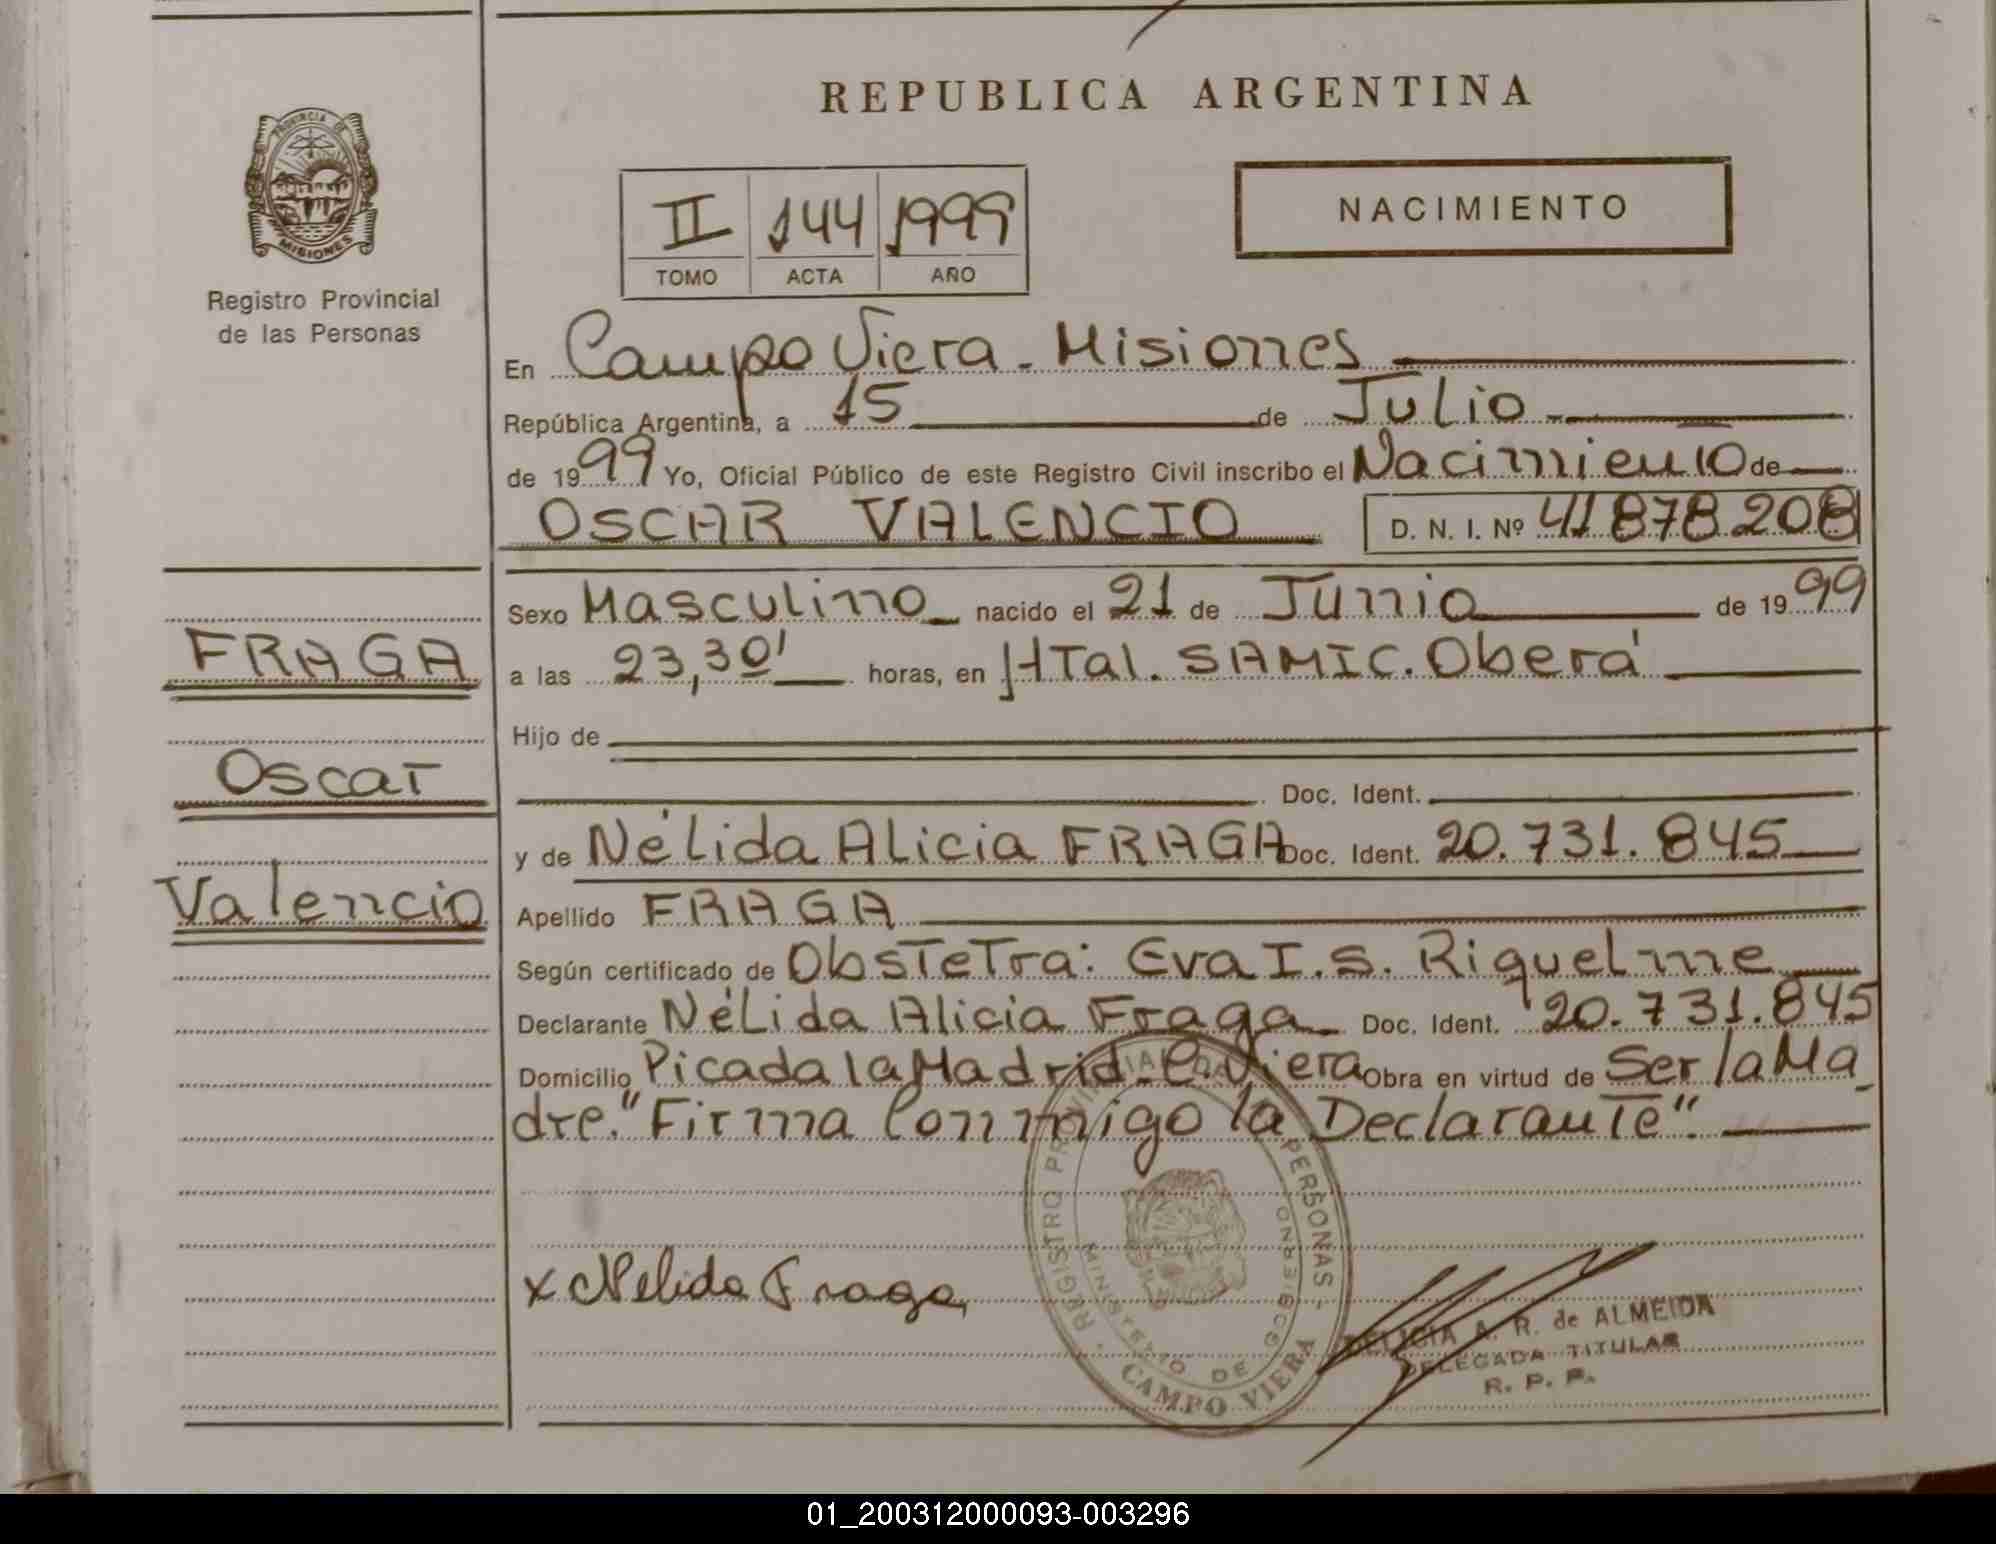 REPUBLICA ARGENTINA
PROVINCIA DE
MISIONES
Registro Provincial
de las Personas
II 144 1999
TOMO ACTA AÑO
NACIMIENTO
En Campo Viera - Misiones
República Argentina, a 15 de Julio
de 1999 Yo, Oficial Público de este Registro Civil inscribo el Nacimiento de
OSCAR VALENCIO D. N. I. Nº 41.878.208
Sexo Masculino nacido el 21 de Junio de 1999
FRAGA
a las 23,30' horas, en HTal. SAMIC. Oberá
Hijo de
Oscar
Doc. Ident.
y de Nélida Alicia FRAGA Doc. Ident. 20.731.845
Valencio
Apellido FRAGA
Según certificado de Obstetra: Eva I. S. Riquelme
Declarante Nélida Alicia Fraga Doc. Ident. 20.731.845
Domicilio Picada la Madrid - C. Viera Obra en virtud de Ser la Ma
dre. "Firma Conmigo la Declarante".
x Nelida Fraga
REGISTRO PROVINCIAL DE LAS PERSONAS -
MINISTERIO DE GOBIERNO
CAMPO VIERA
DELICIA A. R. de ALMEIDA
DELEGADA TITULAR
R. P. P.
01_200312000093-003296